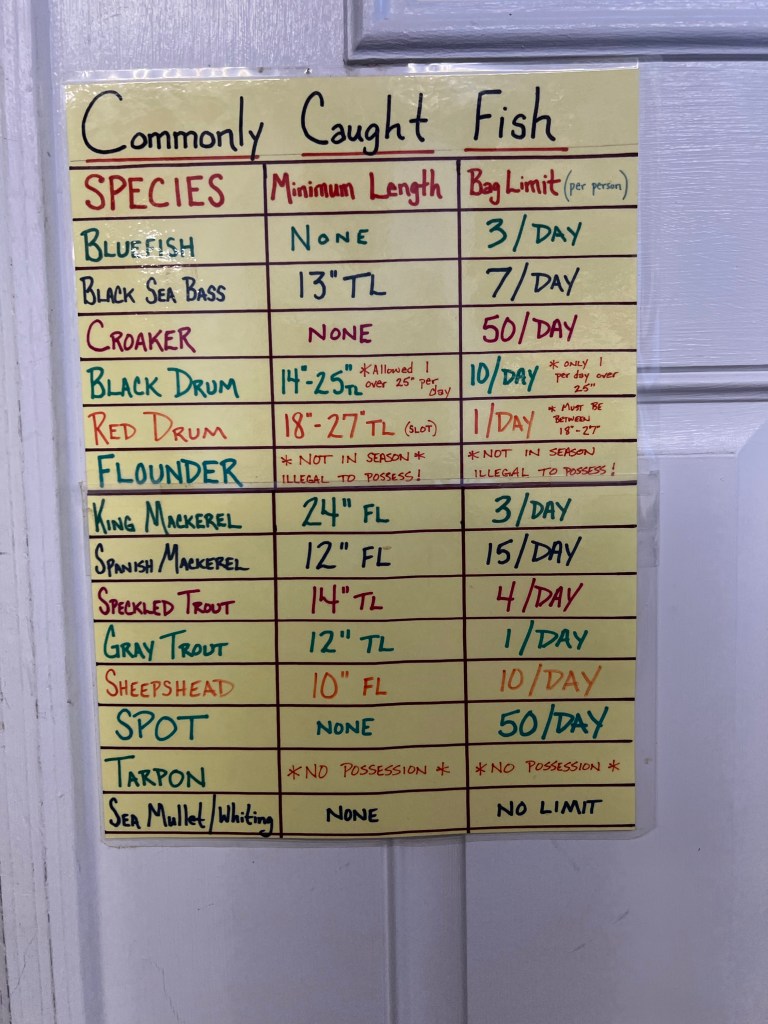 Commonly Caught Fish
SPECIES Minimum Length Bag Limit (per person)
BLUEFISH NONE 3/DAY
BLACK SEA BASS 13" TL 7/DAY
CROAKER NONE 50/DAY
BLACK DRUM 14"-25" TL *Allowed 1 over 25" per day 10/DAY * ONLY 1 per day over 25"
RED DRUM 18"-27" TL (SLOT) 1/DAY * MUST BE BETWEEN 18"-27"
FLOUNDER * NOT IN SEASON * ILLEGAL TO POSSESS! * NOT IN SEASON ILLEGAL TO POSSESS!
KING MACKEREL 24" FL 3/DAY
SPANISH MACKEREL 12" FL 15/DAY
SPECKLED TROUT 14" TL 4/DAY
GRAY TROUT 12" TL 1/DAY
SHEEPSHEAD 10" FL 10/DAY
SPOT NONE 50/DAY
TARPON * NO POSSESSION * * NO POSSESSION *
SEA Mullet/Whiting NONE NO LIMIT